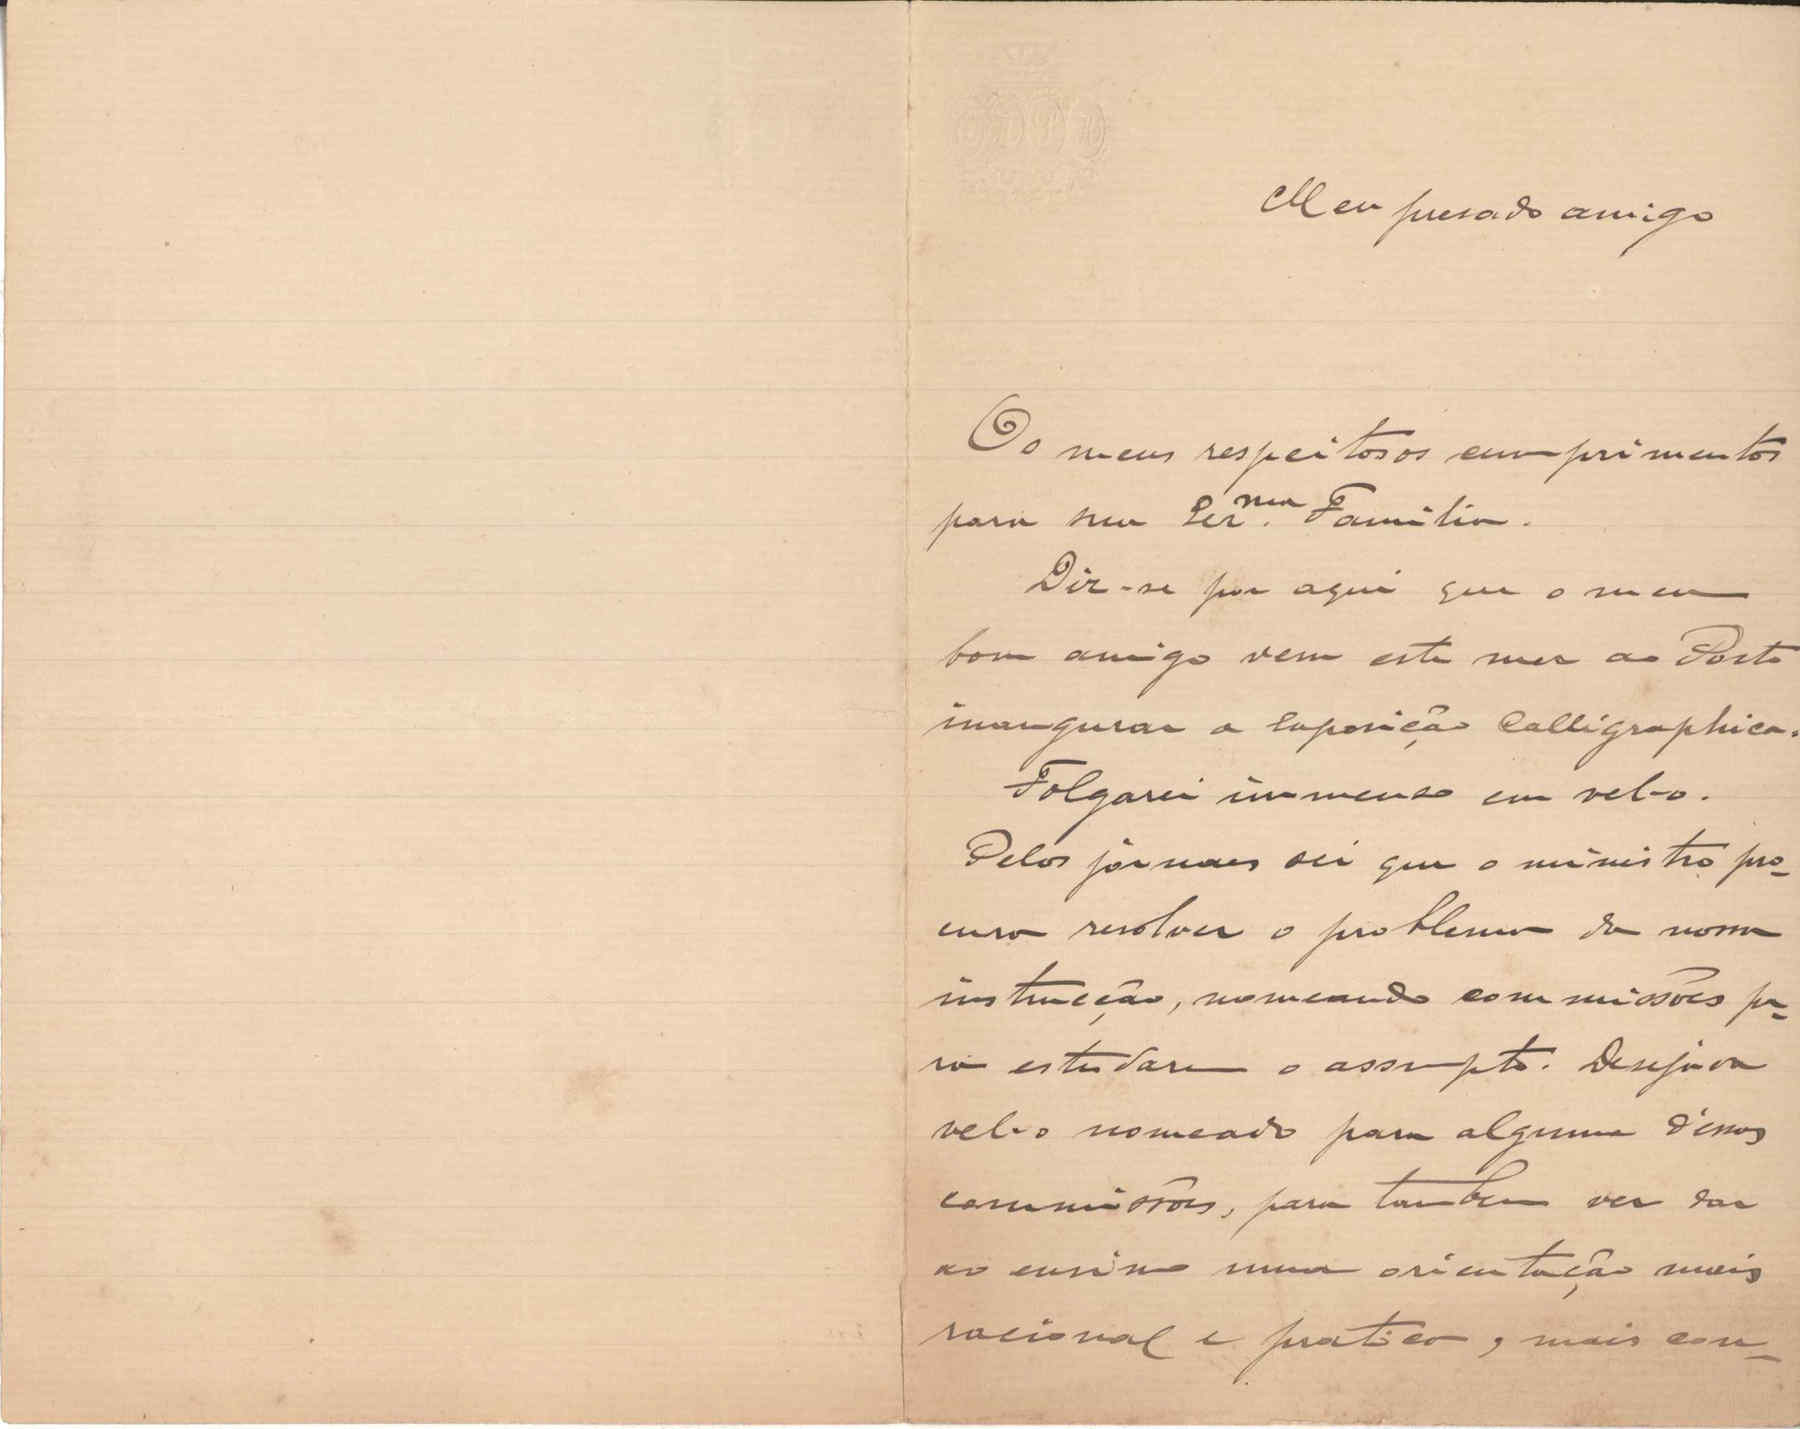 Meu presado amigo
Os meus respeitosos cumprimentos
para sua Exma. Familia.
Diz-se por aqui que o meu
bom amigo vem este mez ao Porto
inaugurar a Exposição Calligraphica.
Folgarei immenso em vel-o.
Pelos jornaes sei que o ministro pro-
cura resolver o problema da nossa
instrucção, nomeando commissões pa-
ra estudarem o assumpto. Desejava
vel-o nomeado para alguma d'essas
commissões, para tambem ver dar
ao ensino uma orientação mais
racional e pratica, mais con-